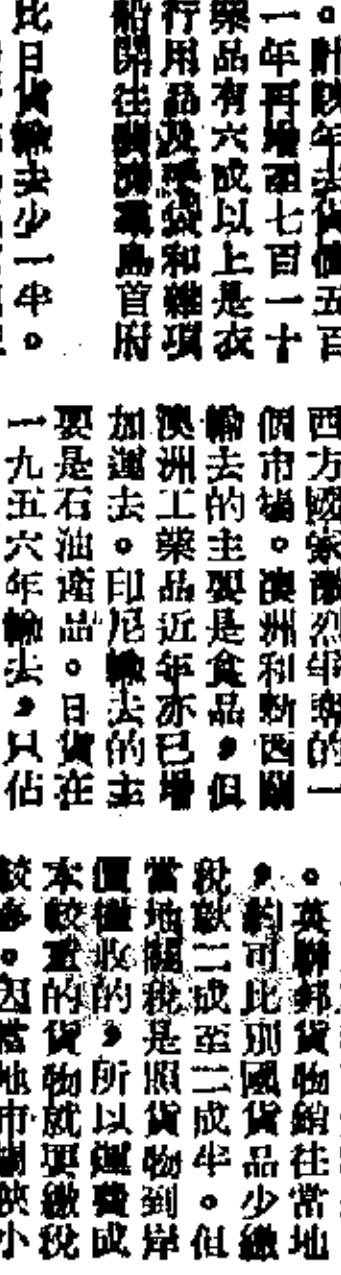 。計該年去貨值五百
一年再增至七百一十
業品有六成以上是衣
行用品及手袋和雜項
船開往斐濟羣島首府
比日貨輸去少一半。
西方國家激烈爭奪的一
個市場。澳洲和新西蘭
輸去的主要是食品，但
澳洲工業品近年亦已增
加運去。印尼輸去的主
要是石油產品。日貨在
一九五六年輸去，只佔
。英聯邦貨物銷往當地
，約可比別國貨品少繳
稅款二成至二成半。但
當地關稅是照貨物到岸
價徵收的，所以運費成
本較重的貨物就要繳稅
較多。因當地市場狹小